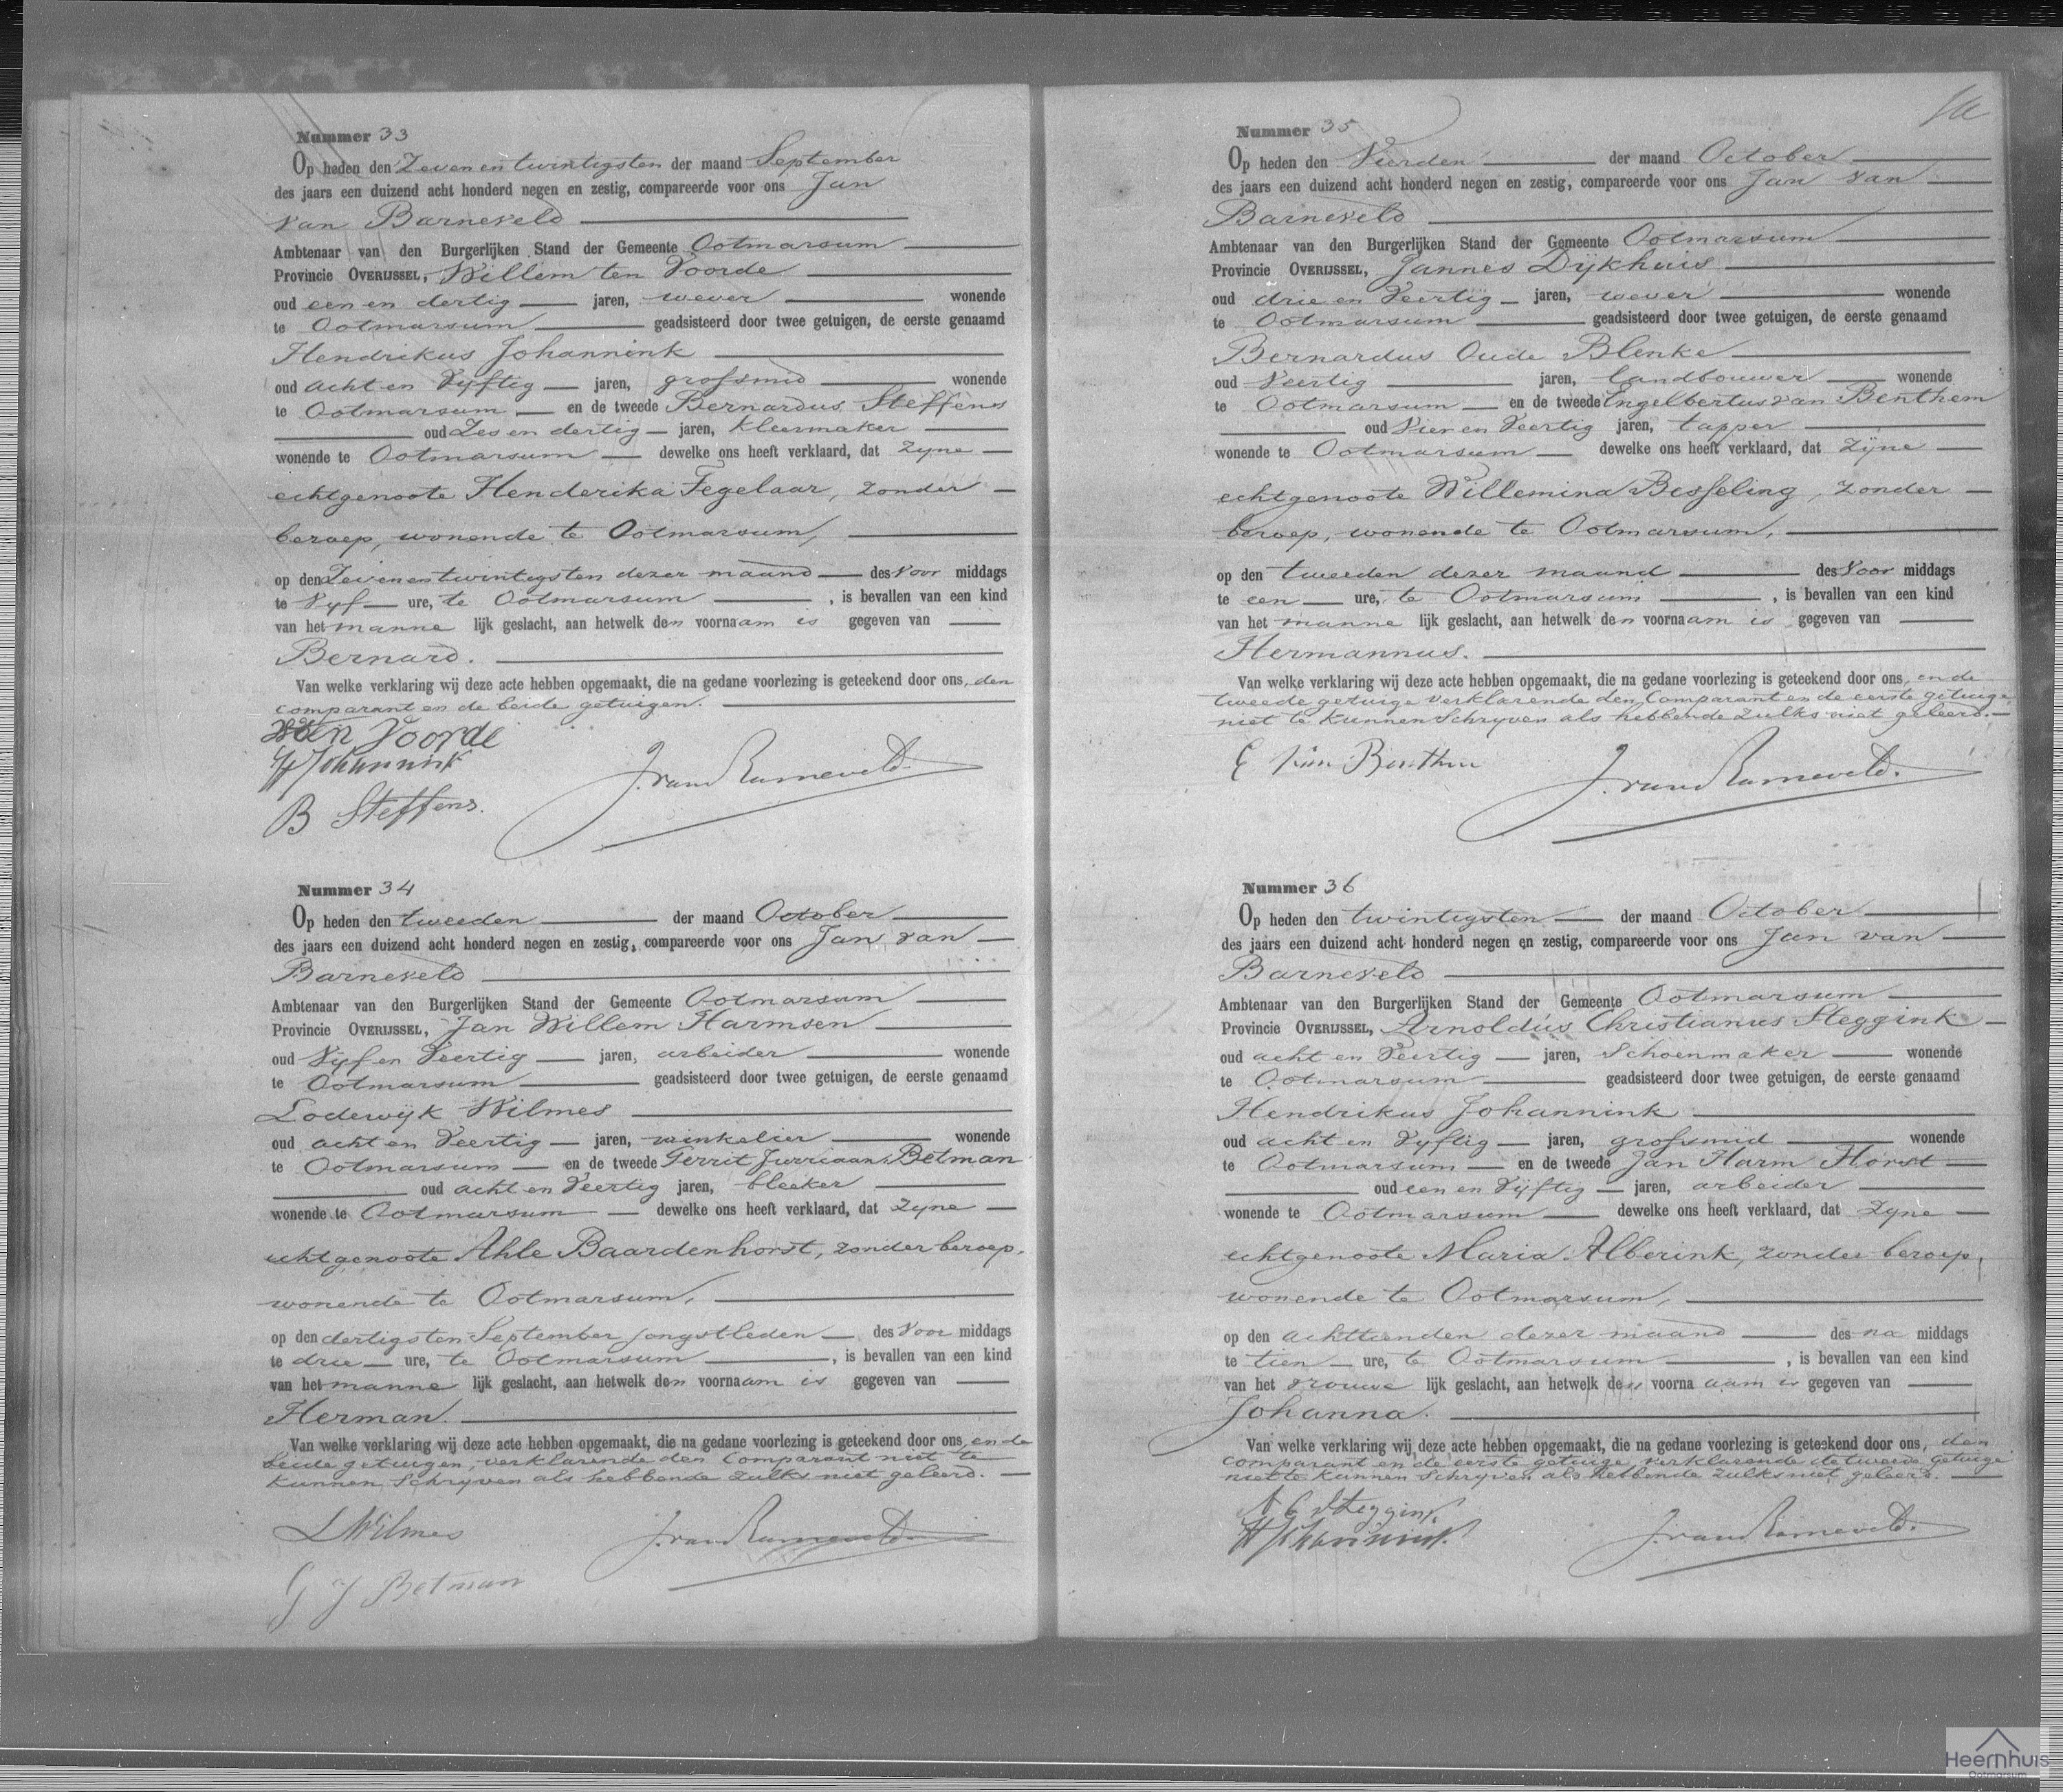 Nummer 33
Op heden den Zeven en twintigsten der maand September
des jaars een duizend acht honderd negen en zestig, compareerde voor ons Jan
van Barneveld
Ambtenaar van den Burgerlijken Stand der Gemeente Ootmarsum
Provincie OVERIJSSEL, Willem ten Voorde
oud een en dertig jaren, wever wonende
te Ootmarsum geadsisteerd door twee getuigen, de eerste genaamd
Hendrikus Johannink
oud acht en Vyftig jaren, grofsmid wonende
te Ootmarsum en de tweede Bernardus Steffens
oud Zes en dertig jaren, kleermaker
wonende te Ootmarsum dewelke ons heeft verklaard, dat Zyne
echtgenoote Henderika Tegelaar, zonder
beroep, wonende te Ootmarsum,
op den Zeven en twintigsten dezer maand des Voor middags
te Vyf ure, te Ootmarsum, is bevallen van een kind
van het manne lijk geslacht, aan hetwelk den voornaam is gegeven van
Bernard.
Van welke verklaring wij deze acte hebben opgemaakt, die na gedane voorlezing is geteekend door ons, den
comparant en de beide getuigen.
ten Voorde
H Johannink
J. van Barneveld.
B Steffens.
Nummer 34
Op heden den tweeden der maand October
des jaars een duizend acht honderd negen en zestig, compareerde voor ons Jan van
Barneveld
Ambtenaar van den Burgerlijken Stand der Gemeente Ootmarsum
Provincie OVERIJSSEL, Jan Willem Harmsen
oud Vyf en Veertig jaren, arbeider wonende
te Ootmarsum geadsisteerd door twee getuigen, de eerste genaamd
Lodewijk Wilmes
oud acht en Veertig jaren, winkelier wonende
te Ootmarsum en de tweede Gerrit Jurriaan Betman
oud acht en Veertig jaren, bleeker
wonende te Ootmarsum dewelke ons heeft verklaard, dat Zyne
echtgenoote Ahle Baardenhorst, zonder beroep,
wonende te Ootmarsum,
op den dertigsten September jongstleden des Voor middags
te drie ure, te Ootmarsum, is bevallen van een kind
van het manne lijk geslacht, aan hetwelk den voornaam is gegeven van
Herman.
Van welke verklaring wij deze acte hebben opgemaakt, die na gedane voorlezing is geteekend door ons, en de
beide getuigen, verklarende den Comparant niet te
kunnen Schryven als hebbende zulks niet geleerd.
L Wilmes
J. van Barneveld.
G J Betman
Nummer 35
Op heden den Vierden der maand October
des jaars een duizend acht honderd negen en zestig, compareerde voor ons Jan van
Barneveld
Ambtenaar van den Burgerlijken Stand der Gemeente Ootmarsum
Provincie OVERIJSSEL, Jannes Dijkhuis
oud drie en Veertig jaren, wever wonende
te Ootmarsum geadsisteerd door twee getuigen, de eerste genaamd
Bernardus Oude Blenke
oud Veertig jaren, landbouwer wonende
te Ootmarsum en de tweede Engelbertus van Benthem
oud Vier en Veertig jaren, tapper
wonende te Ootmarsum dewelke ons heeft verklaard, dat Zijne
echtgenoote Willemina Besseling, zonder
beroep, wonende te Ootmarsum,
op den tweeden dezer maand des Voor middags
te een ure, te Ootmarsum, is bevallen van een kind
van het manne lijk geslacht, aan hetwelk den voornaam is gegeven van
Hermannus.
Van welke verklaring wij deze acte hebben opgemaakt, die na gedane voorlezing is geteekend door ons, en de
tweede getuige verklarende den Comparant en de eerste getuige
niet te Kunnen Schryven als hebbende zulks niet geleerd.
E van Benthem
J. van Barneveld.
Nummer 36
Op heden den twintigsten der maand October
des jaars een duizend acht honderd negen en zestig, compareerde voor ons Jan van
Barneveld
Ambtenaar van den Burgerlijken Stand der Gemeente Ootmarsum
Provincie OVERIJSSEL, Arnoldus Christianus Steggink
oud acht en Veertig jaren, Schoenmaker wonende
te Ootmarsum geadsisteerd door twee getuigen, de eerste genaamd
Hendrikus Johannink
oud acht en Vyftig jaren, grofsmid wonende
te Ootmarsum en de tweede Jan Harm Horst
oud een en Vijftig jaren, arbeider
wonende te Ootmarsum dewelke ons heeft verklaard, dat Zyne
echtgenoote Maria Alberink, zonder beroep,
wonende te Ootmarsum,
op den achttienden dezer maand des na middags
te tien ure, te Ootmarsum, is bevallen van een kind
van het vrouwe lijk geslacht, aan hetwelk den voorna aam is gegeven van
Johanna.
Van welke verklaring wij deze acte hebben opgemaakt, die na gedane voorlezing is geteekend door ons, den
comparant en de eerste getuige verklarende de tweede getuige
niet te Kunnen Schryven als hebbende zulks niet geleerd.
A C Steggink
H Johannink
J. van Barneveld.
Heernhuis
Ootmarsum